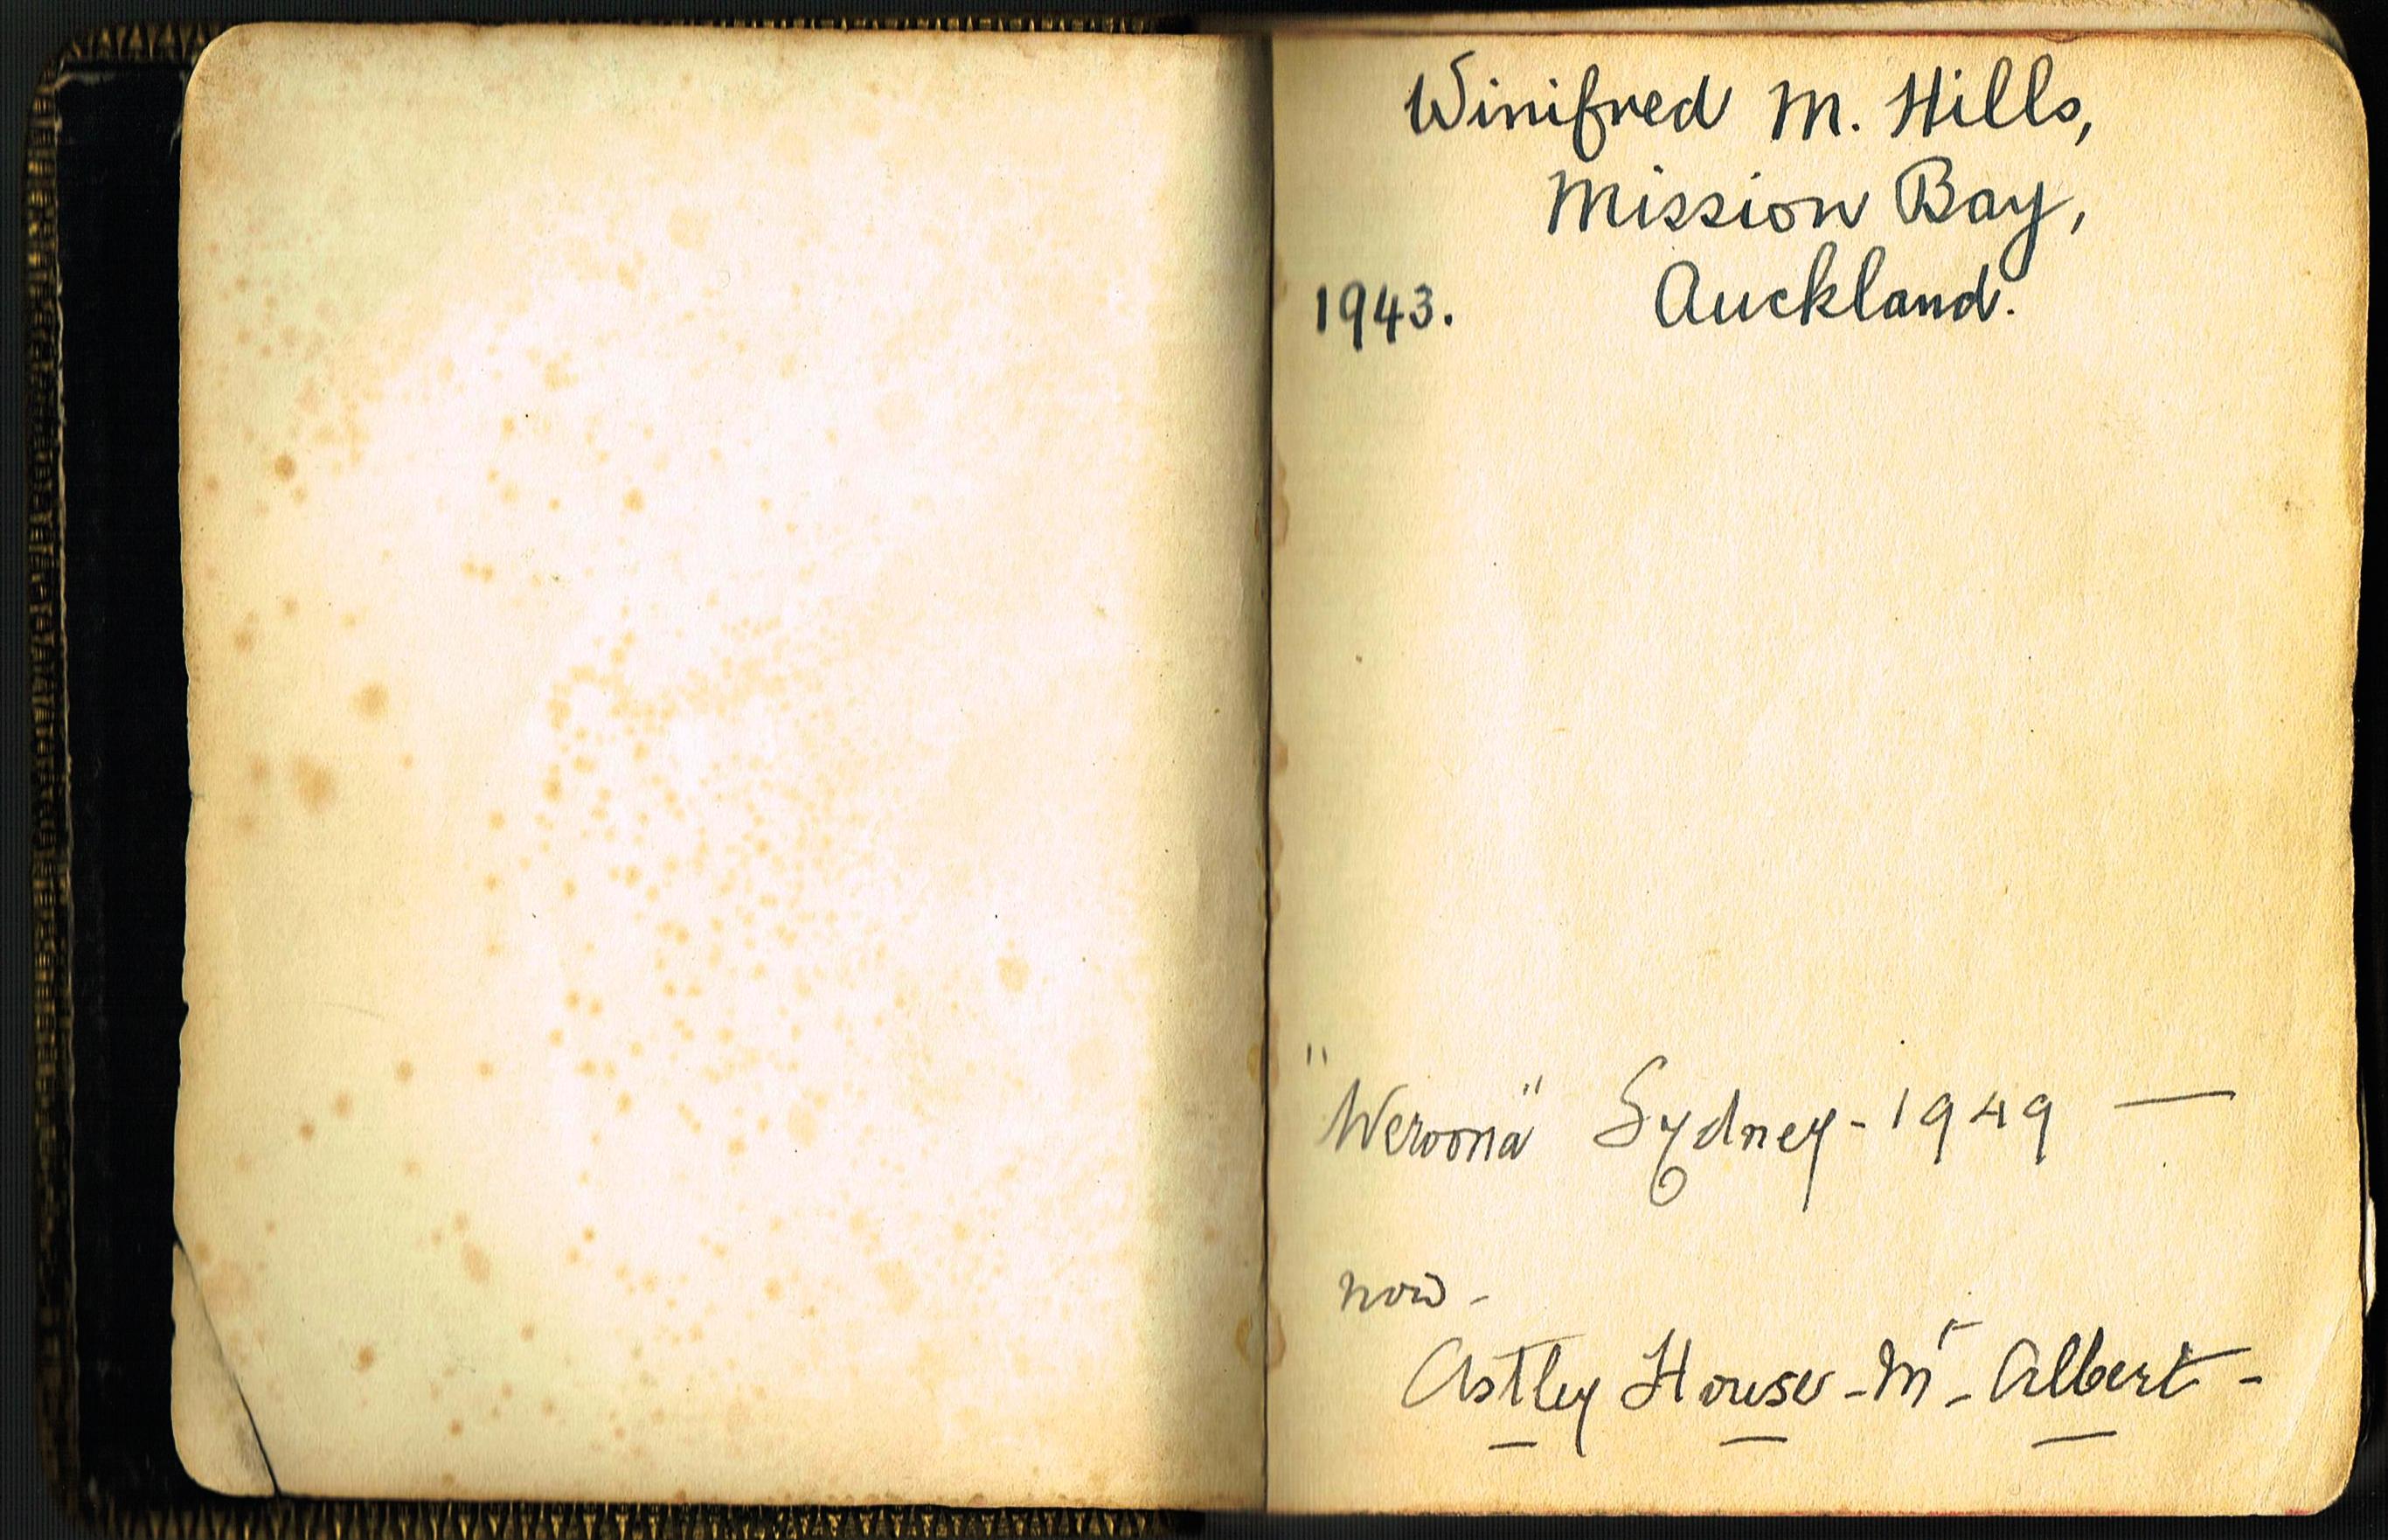 Winifred M. Hills,
Mission Bay,
1943. Auckland.
"Weroona" Sydney - 1949 —
now -
Astley House - Mt - Albert -